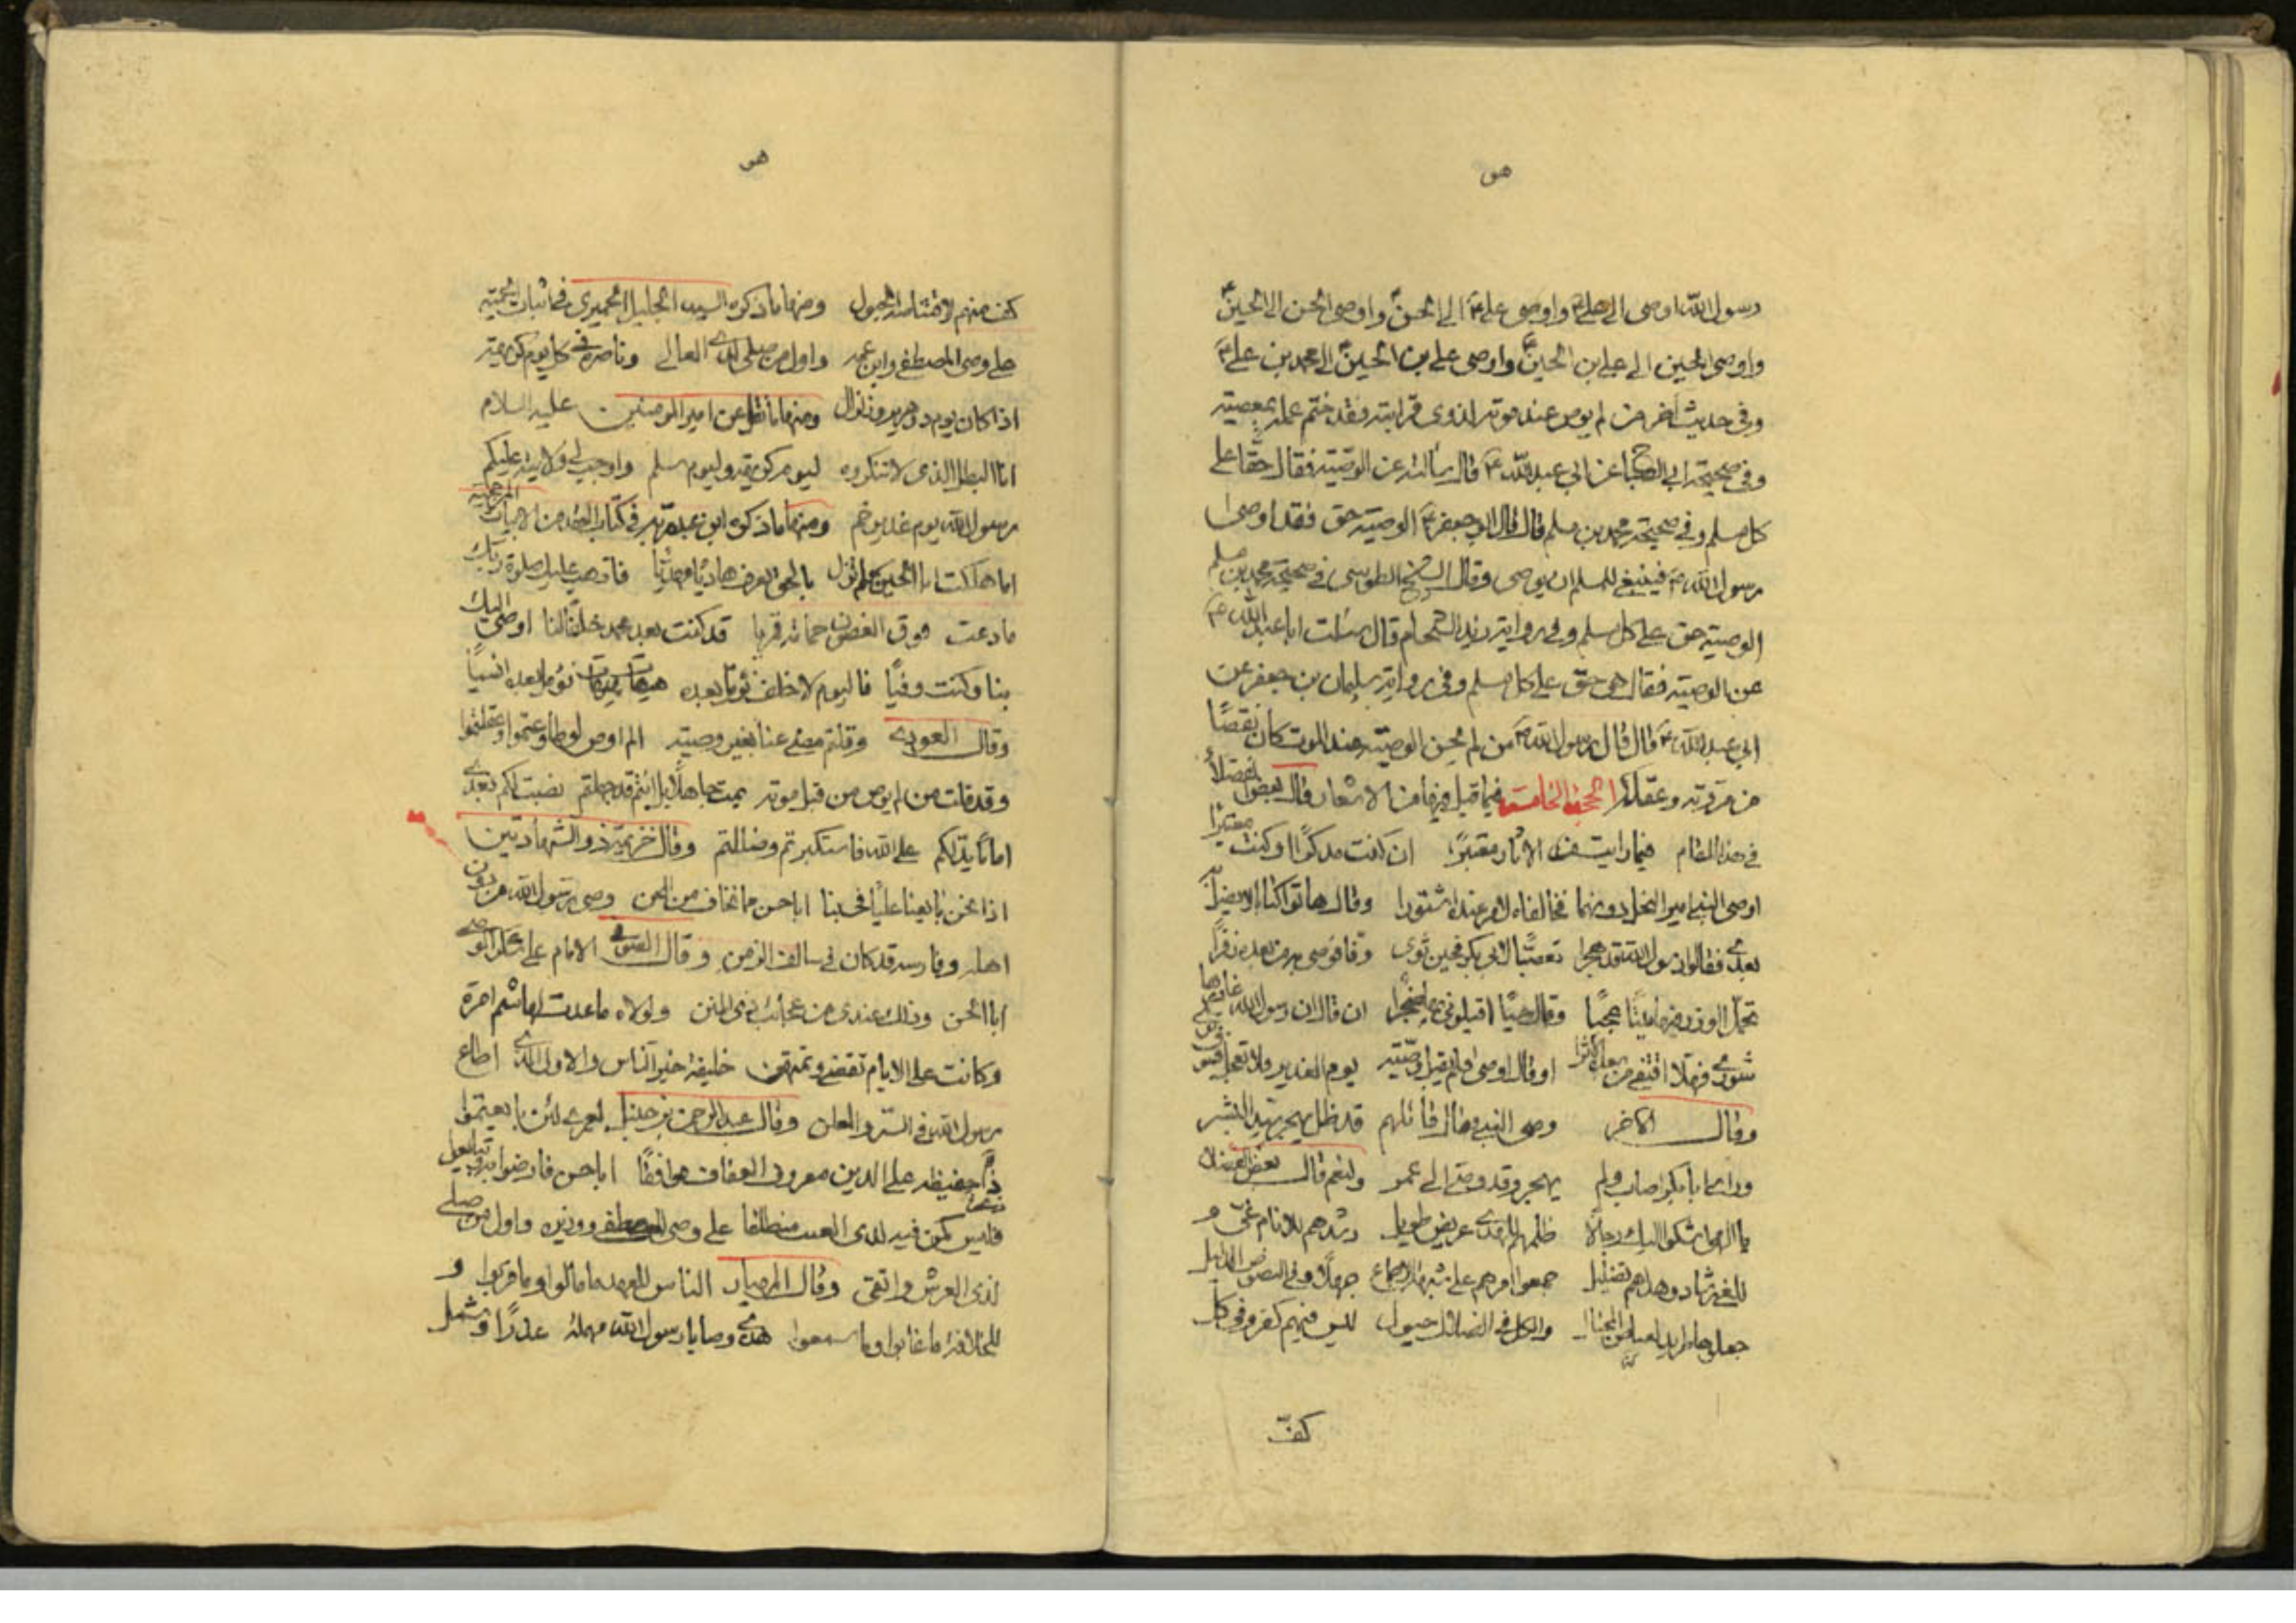 هو
رسول الله اوصى الى علي ع واوصى علي ع الى الحسن ع واوصى الحسن الى الحسين ع
واوصى الحسين الى علي بن الحسين ع واوصى علي بن الحسين ع الى محمد بن علي ع
وفي حديث اخر من لم يوص عند موته لذوي قرابته فقد ختم عمله بمعصيته
وفي صحيحة ابي الصباح عن ابي عبد الله ع قال سألته عن الوصية فقال حق على
كل مسلم وفي صحيحة محمد بن مسلم قال قال ابو جعفر ع الوصية حق فقد اوصى
رسول الله ص فينبغي للمسلم ان يوصي وقال الشيخ الطوسي في صحيحة محمد بن مسلم
الوصية حق على كل مسلم وفي رواية زيد الشحام قال سئلت ابا عبد الله ع
عن الوصية فقال هي حق على كل مسلم وفي رواية سليمان بن جعفر عن
ابي عبد الله ع قال قال رسول الله ص من لم يحسن الوصية عند الموت كان نقصًا
من مروته وعقله الحجة الخامسة فيما قيل فيها من الاشعار قال بعض الفضلاء
في هذا المقام فيما رأيت الاثار معتبرًا ان كنت مدكرًا او كنت معتبرا
اوصى النبي امير النحل دونهما فخالفاه لامر عنده اشتورا وقال هاتوا كتابا لا يضل
بعدي فقالوا رسول الله قد هجرا تعصبًا لابي بكر فحين ثوى وفا فوصى به من بعده نفرًا
تحمل الوزر فيها ميتًا عجبًا وقال حيًا اقيلوني ضجرا ان قال ان رسول الله غادرها
شورى فهلا اقتفى من بعده الاثرا او قال اوصى فلم يقبل وصيته يوم الغدير فلا تعجل فسوف ترى
وقال الاخر وصى النبي وقال قائلهم قد ظل يهجر سيد البشر
وراى ابا بكر اصاب ولم يهجر وقد وصى الى عمر ولنعم قال بعض الفضلاء
يا الهي اشكو اليك رجالًا ظلمهم للهدى عريض طويل رشدهم للانام غي و
للغي رشاد وهداهم تضليل جمعوا امرهم على شبهة الاجماع جهلًا وفي النصوص الدليل
والكل في الضلال حيول ليس فيهم كفر وفي كل
كفّ
هو
كف منهم ومنها ما ذكره السيد الجليل الحميري في اثبات
علي وصي المصطفى وابن عمه واول من صلى لذي العالي وناصره في كل يوم كريهة
اذا كان يوم ذو هرير ونزال ومنها ما نقل عن امير المؤمنين عليه السلام
انا البطل الذي لا تنكروه ليوم كريهة وليوم سلم واوجب لي ولايته عليكم
رسول الله يوم غدير خم ومنها ما ذكره ابن عبد ربه في كتاب العقد من الابيات
اما هلكت ابا الحسين فلم تزل بالحق تعرف هاديًا مهديًا فاذهب عليك صلوة ربك
ما دعت فوق الغصون حمامة قمريا قد كنت بعد محمد خلفًا لنا اوصى اليك
بنا وكنت وفيًا فاليوم لا خلف نؤمل بعده هيهات نؤمل بعده انسيًا
وقال العوني وقلتم مضى عنا بغير وصية الم اوص لو طاوعتم وعقلتموا
وقد قلت من لم يوص من قبل موته يمت جاهلًا بل انتم قد جهلتم نصبت لكم بعدي
امامًا يدلكم على الله فاستكبرتم وضللتم وقال خزيمة ذو الشهادتين
اذا نحن بايعنا عليًا فحسبنا ابا حسن مما نخاف من المحن وصي رسول الله من دون
اهله وفارسه قد كان في سالف الزمن وقال الامام علي
ابا الحسن وذلك عندي من عجائب ذي المنن ولولاه ما عدت لهاشم امرة
وكانت على الايام تقضى وتمتهن خليفة خير الناس والاول الذي اطاع
رسول الله في السر والعلن وقال عبد الرحمن بن حنبل لعمري لئن بايعتموا
ذا حفيظة على الدين معروف العفاف موافقًا ابا حسن فارضوا به وتبايعوا
فليس كمن فيه لذي العيب منطقًا علي وصي المصطفى ووزيره واول من صلى
لذي العرش واتقى وقال المهيار الناس للعهد ما مالوا وما قربوا و
للخلافة ما غابوا وما سمعوا هذي وصايا رسول الله مهملة غدرًا وشمل